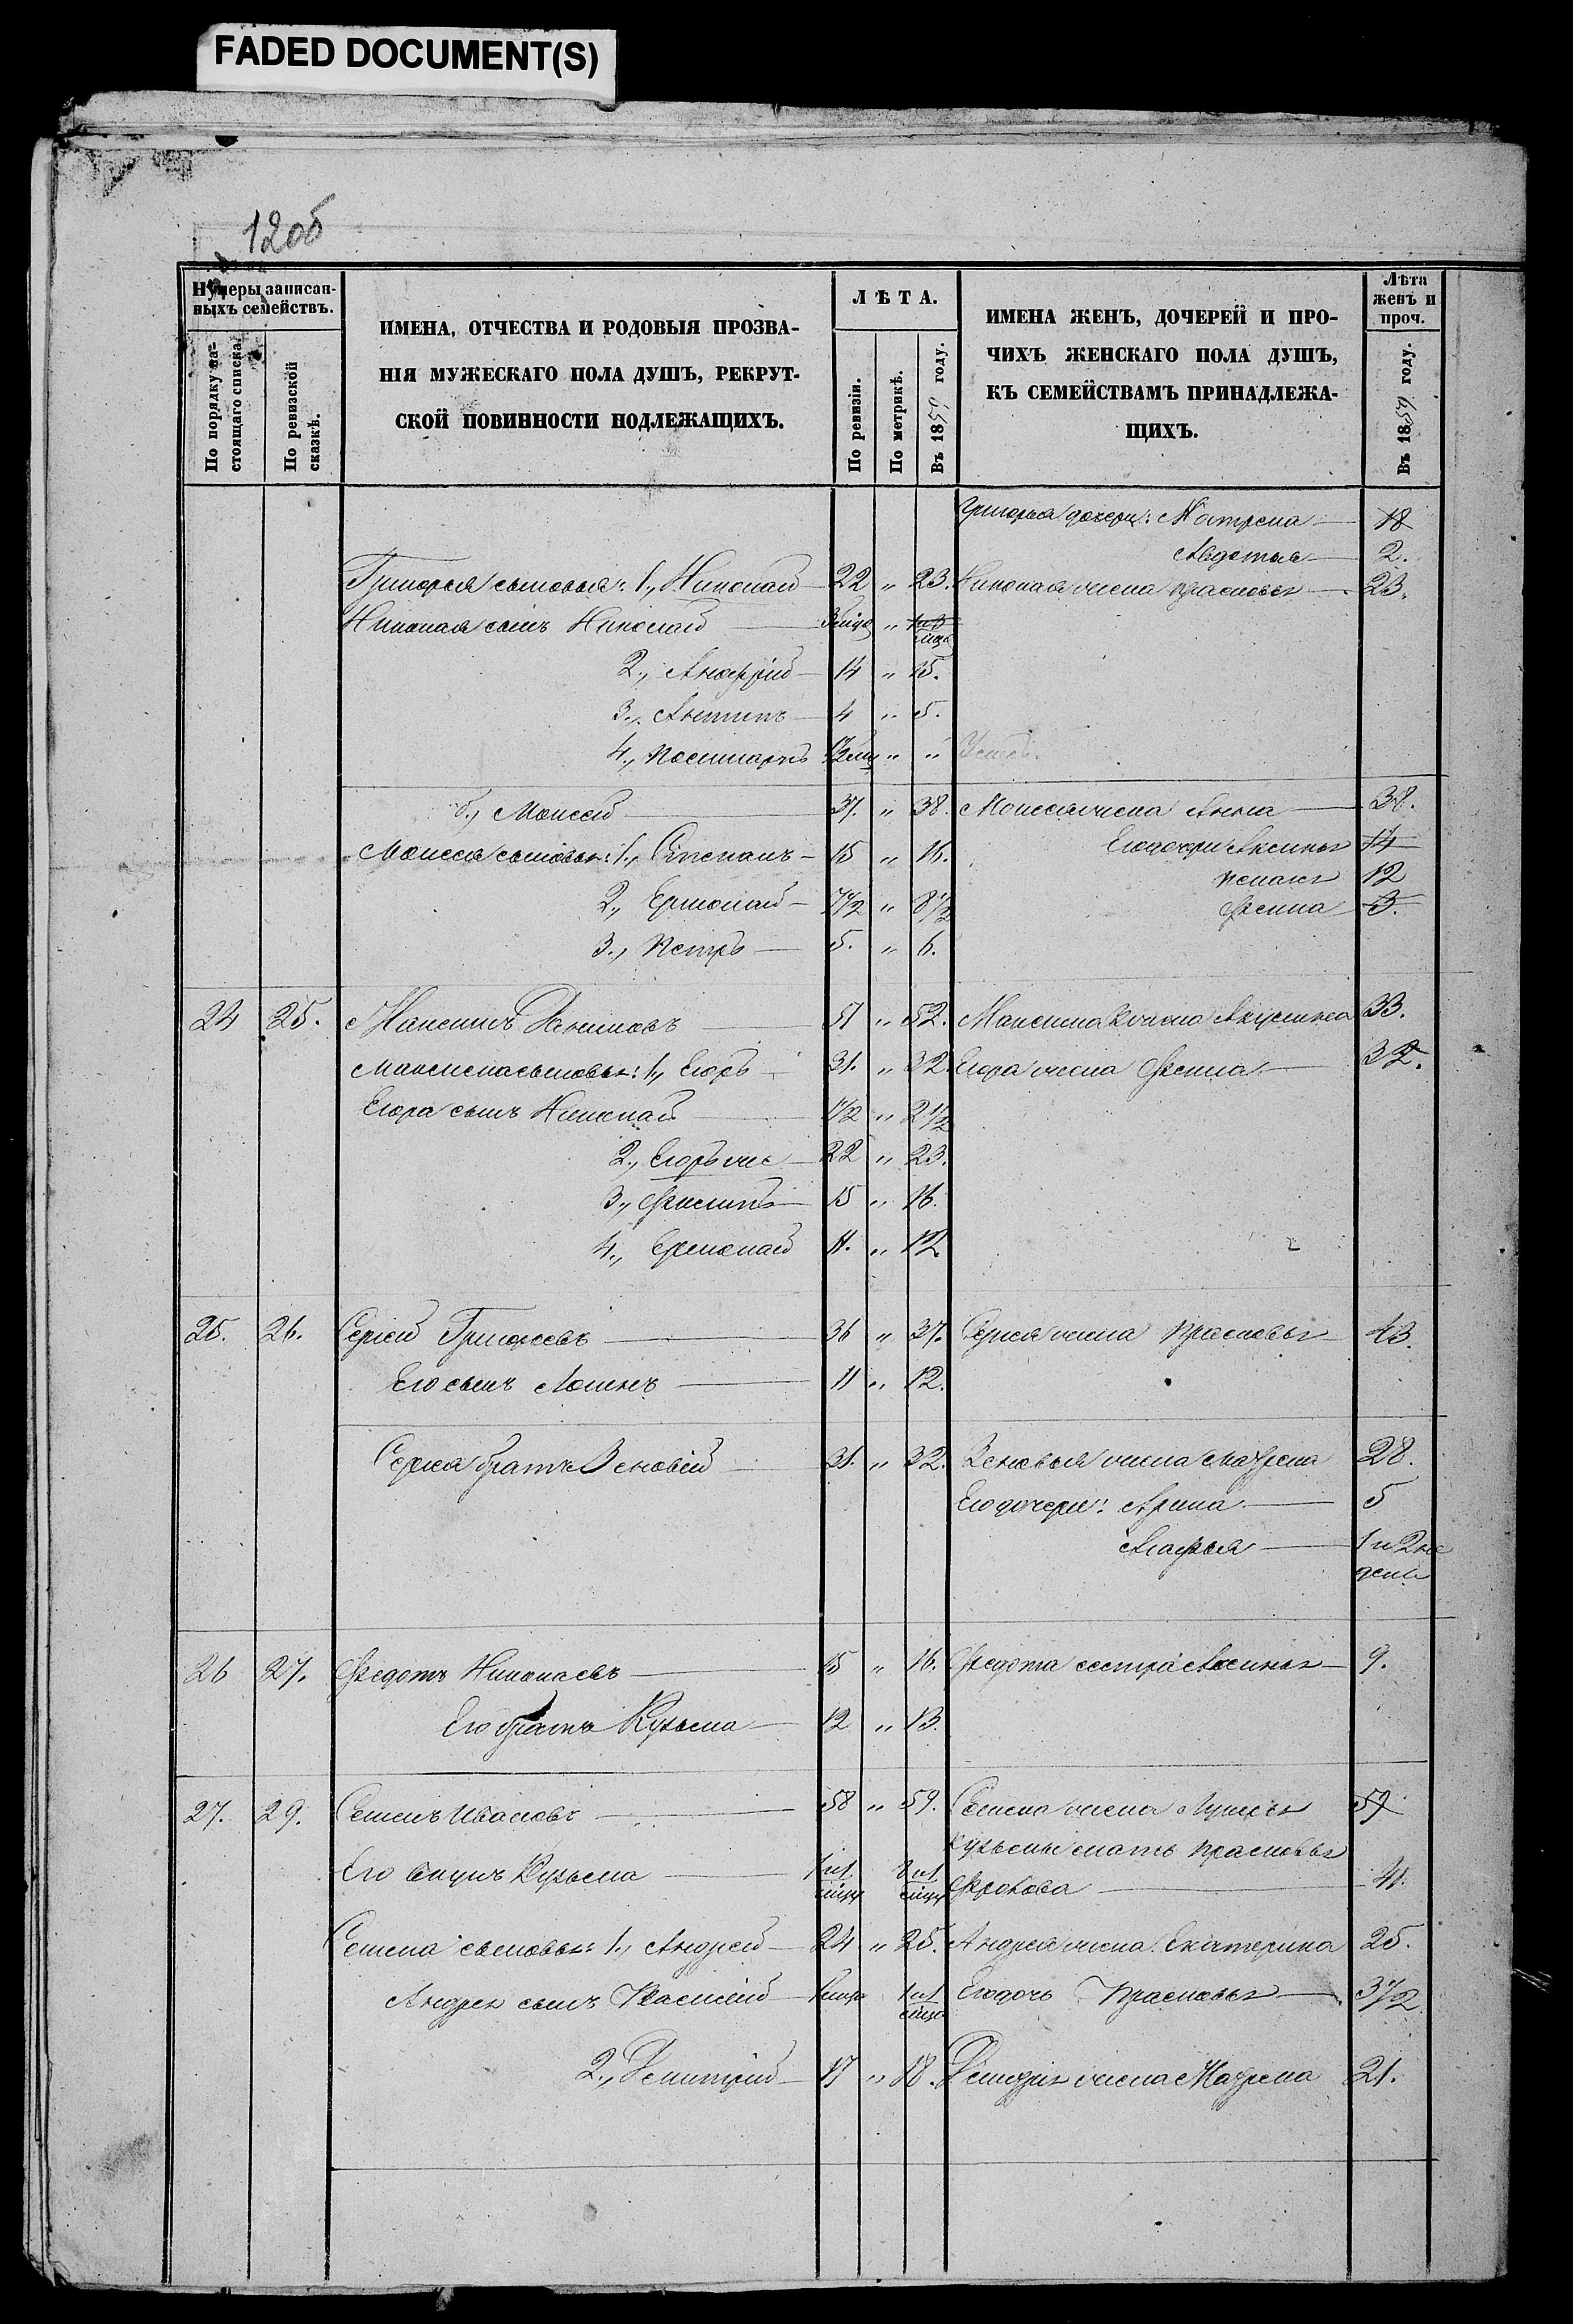 FADED DOCUMENT(S)
12об
Нумеры записан-
ныхъ семействъ.
По порядку на-
стоящаго списка.
По ревизской
сказкѣ.
ИМЕНА, ОТЧЕСТВА И РОДОВЫЯ ПРОЗВА-
НІЯ МУЖЕСКАГО ПОЛА ДУШЪ, РЕКРУТ-
СКОЙ ПОВИННОСТИ ПОДЛЕЖАЩИХЪ.
ЛѢТА.
По ревизіи.
По метрикѣ.
Въ 1859 году.
ИМЕНА ЖЕНЪ, ДОЧЕРЕЙ И ПРО-
ЧИХЪ ЖЕНСКАГО ПОЛА ДУШЪ,
КЪ СЕМЕЙСТВАМЪ ПРИНАДЛЕЖА-
ЩИХЪ.
Лѣта
женъ и
проч.
Въ 1859 году.
Григорья дочери: Матрена 18
Авдотья 2.
Григорья сыновья: 1., Николай 22 " 23. Николая жена Прасковья 23.
Николая сынъ Николай "
2., Андрій 14 " 15.
3., Антипъ 4 " 5.
4., " "
б., Моисей 37. " 38. Моисея жена Анна 38.
Моисея сыновья: 1., Степанъ 15 " 16. Его дочери Аксинья 14
12
2., Ермолай 7 1/2 " 8 1/2 Фекла 3.
3., Петръ 5. " 6.
24 25. Максимъ Денисовъ 51 " 52. Максима жена Акулина 33.
Максима сыновья: 1., Егоръ 31. " 32. Егора жена Фекла 32.
Егора сынъ Николай 1 1/2 " 2 1/2
2., Егоръ же 22 " 23.
3., Филипъ 15 " 16.
4., Ермолай 11. " 12
25. 26. Сергій Григорьевъ 36 " 37. Сергія жена Прасковья 43.
Его сынъ Логинъ 11 " 12.
Сергія братъ Зеновій 31. " 32. Зеновья жена Матрена 28.
Его дочери: Арина 5
Марья 1 и 2 не
дели
26 27. Федотъ Николаевъ 15 " 16. Федота сестра Аксинья 9.
Его братъ Кузьма 12 " 13.
27. 29. Семенъ Ивановъ 58 " 59. Семена жена Лукерья 59
Кузьмы мать Прасковья
Его внукъ Кузьма Фролова 41.
Семена сыновья: 1., Андрей 24 " 25. Андрея жена Екатерина 25.
Андрея сынъ Василій Его дочь Прасковья 3 1/2
2., Дмитрій 17 " 18. Дмитрія жена Матрена 21.